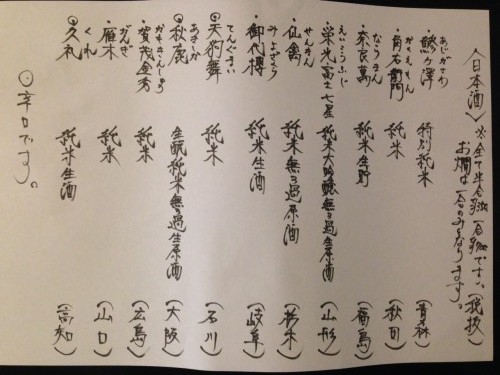 〈日本酒〉 ※全て半合 一合 です。(税抜)
お燗は一合のみとなります。
あじがさわ
・鯵ヶ澤 特別純米 (青森)
かくえもん
・角右衛門 純米 (秋田)
・奈良萬 純米生貯 (福島)
えいこうふじ
・栄光冨士 七星 純米大吟醸無ろ過生原酒 (山形)
せんきん
・仙禽 純米無ろ過原酒 (栃木)
みよざくら
・御代櫻 純米生酒 (岐阜)
てんぐまい
◎天狗舞 純米 (石川)
あきしか
◎秋鹿 生酛純米無ろ過生原酒 (大阪)
かもきんしゅう
・賀茂金秀 純米 (広島)
がんぎ
・雁木 純米 (山口)
くれ
◎久礼 純米生酒 (高知)
◎辛口です。